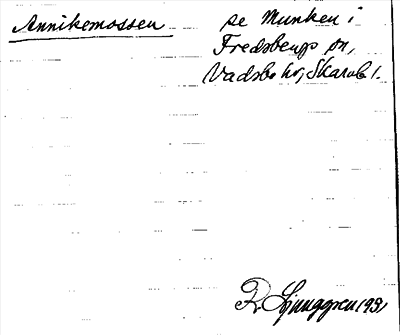 Annikemossen
se Munken i
Fredsbergs sn,
Vadsbo hd, Skarab l.
R. Ljunggren 1931